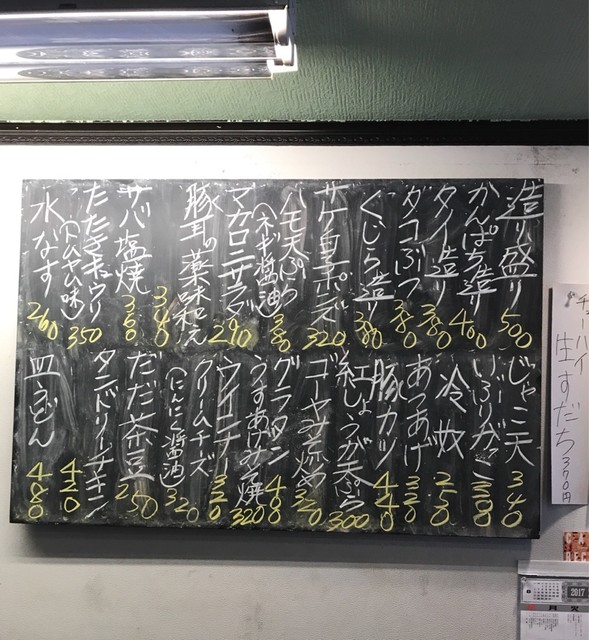 造り盛り 500
かんぱち造り 400
タイ造り 380
タコぶつ 380
くじら造り 380
サケ白子ポンズ 320
ハモ天ぷら 380
(ネギ醤油)
マカロニサラダ 290
豚耳の薬味和え 340
サバ塩焼 360
たたきキュウリ 350
(トムヤム味)
水なす 260
じゃこ天 340
いぶりがっこ
冷奴 250
あつあげ 320
豚カツ 440
紅しょうが天ぷら 300
ゴーヤみそ炒め 320
グラタン 480
うすあげみそ焼 320
ウインナー 320
クリームチーズ 320
(にんにく醤油)
だだ茶豆 250
タンドリーチキン 420
皿うどん 480
チューハイ
生すだち 370円
2017
月 火